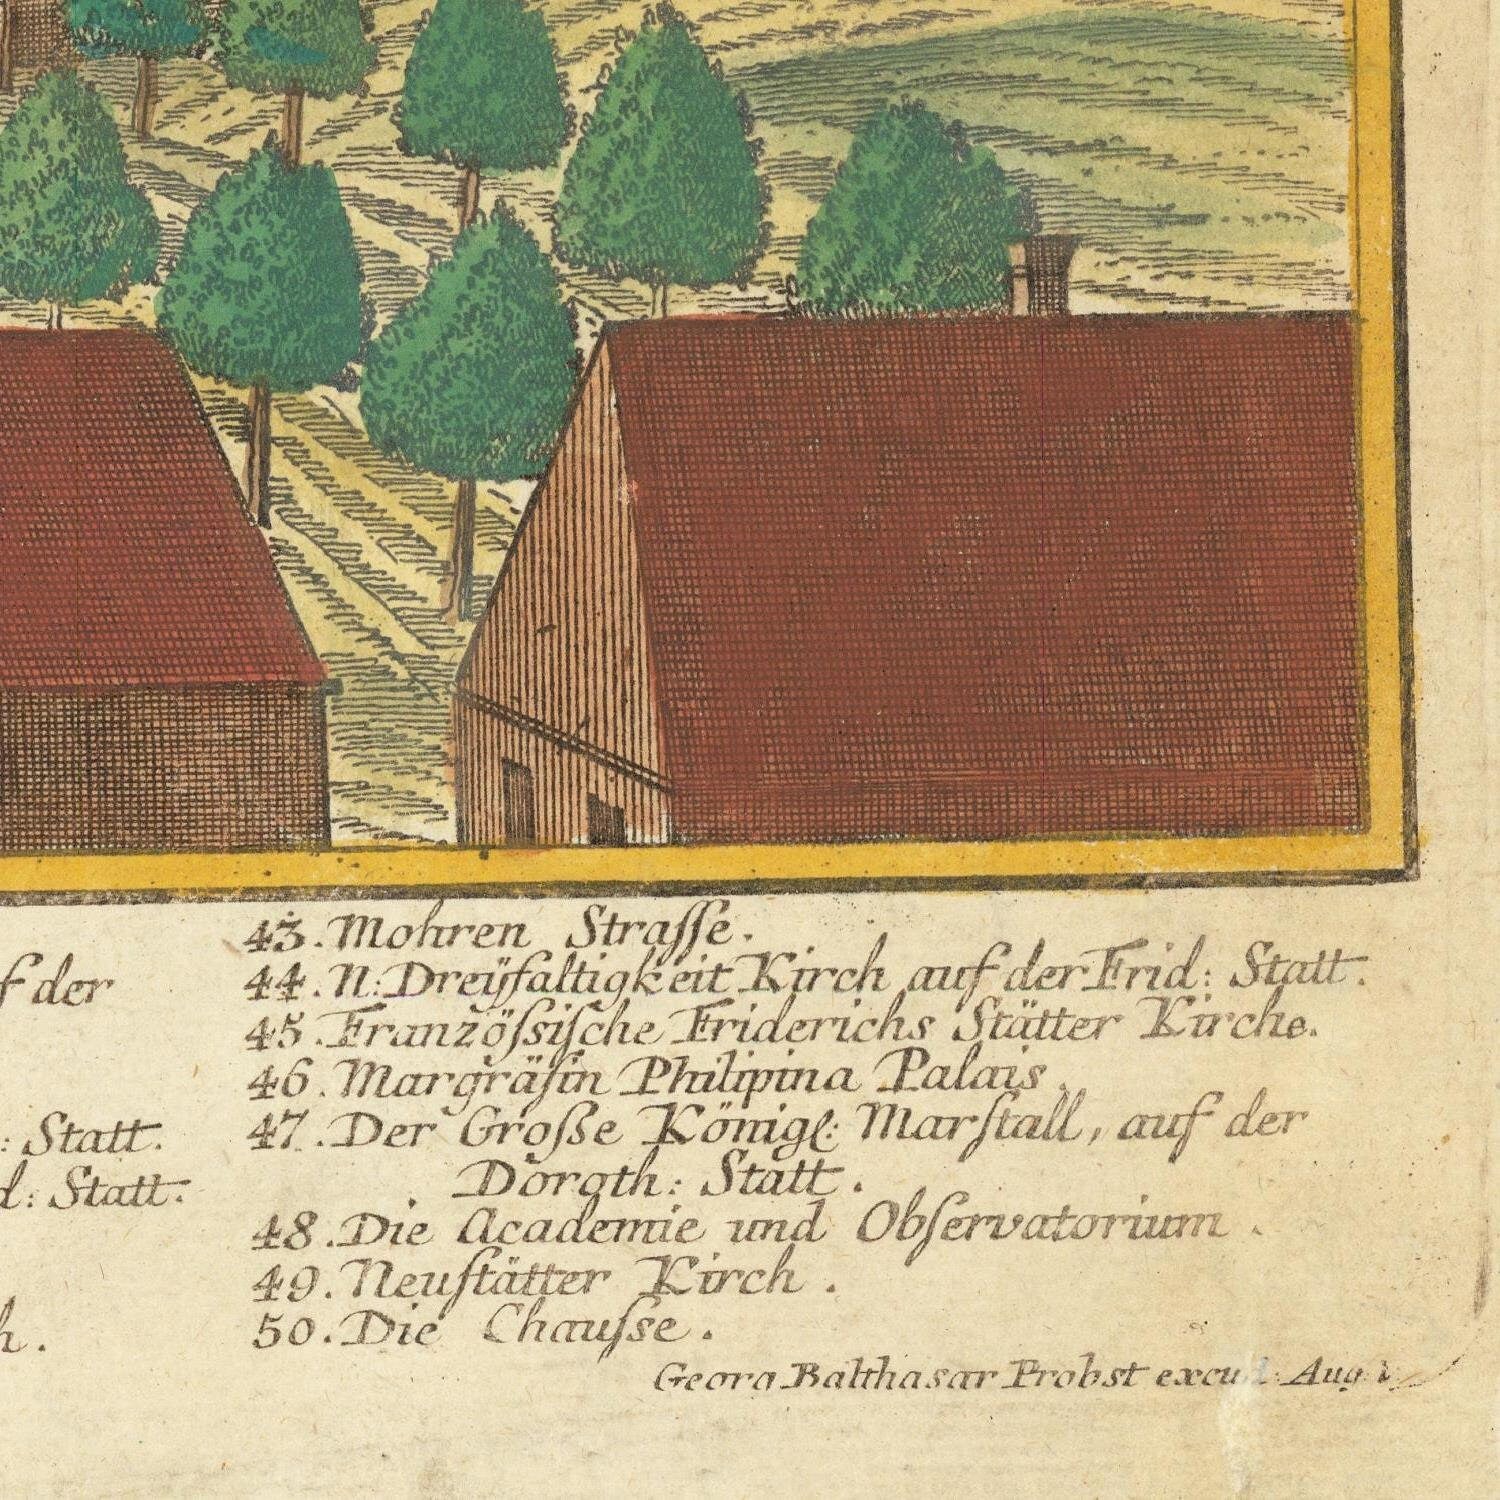 f der
: Statt.
d: Statt.
h.
43. Mohren Straſſe.
44. N: Dreÿfaltigkeit Kirch auf der Frid: Statt.
45. Französſiſche Friderichs Stätter Kirche.
46. Margräfin Philipina Palais.
47. Der Groſse Königl: Marſtall, auf der
Doroth: Statt.
48. Die Academie und Obſervatorium.
49. Neuſtätter Kirch.
50. Die Chauſse.
Georg Balthasar Probst excud: Aug. V.